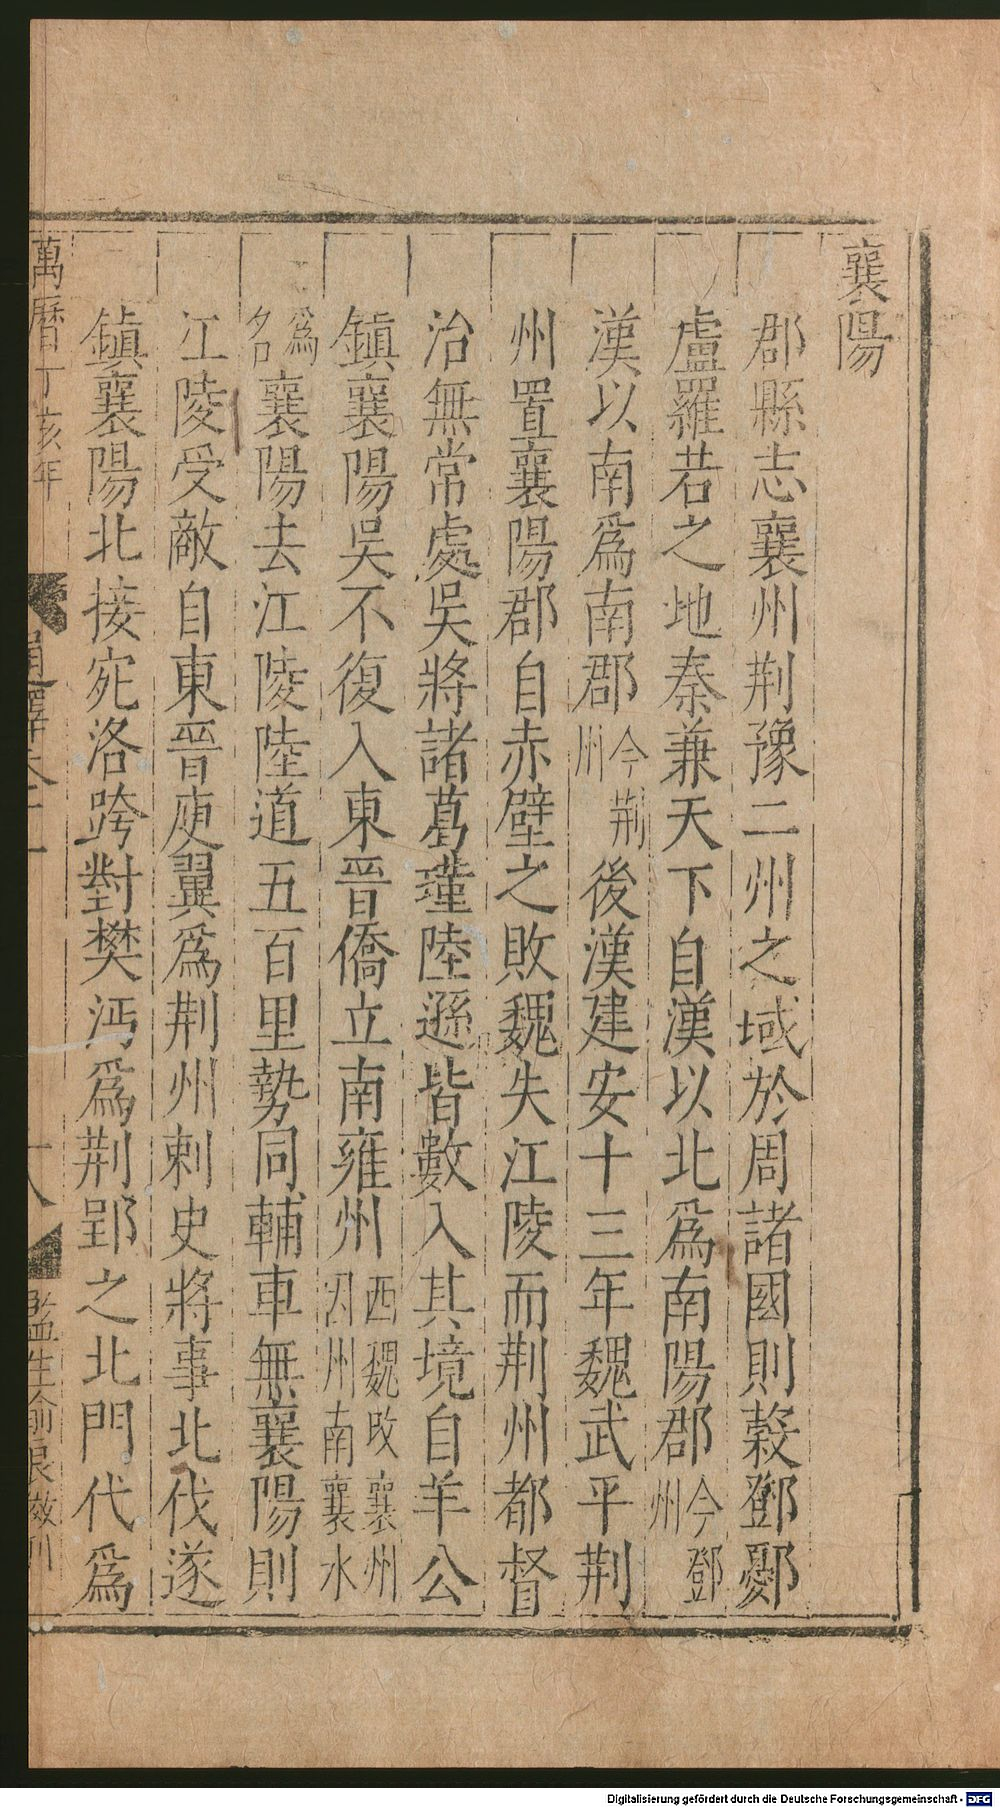 襄陽
郡縣志襄州荆豫二州之域於周諸國則穀鄧鄾
盧羅若之地秦兼天下自漢以北爲南陽郡今鄧州
漢以南爲南郡今荆州後漢建安十三年魏武平荆
州置襄陽郡自赤壁之敗魏失江陵而荆州都督
治無常處吳將諸葛瑾陸遜皆數入其境自羊公
鎮襄陽吳不復入東晉僑立南雍州西魏改襄州因州南襄水
爲名襄陽去江陵陸道五百里勢同輔車無襄陽則
江陵受敵自東晉庾翼爲荆州刺史將事北伐遂
鎮襄陽北接宛洛跨對樊沔爲荆郢之北門代爲
萬曆丁亥年
通釋卷十一
十八
監生俞良 刊
Digitalisierung gefördert durch die Deutsche Forschungsgemeinschaft - DFG